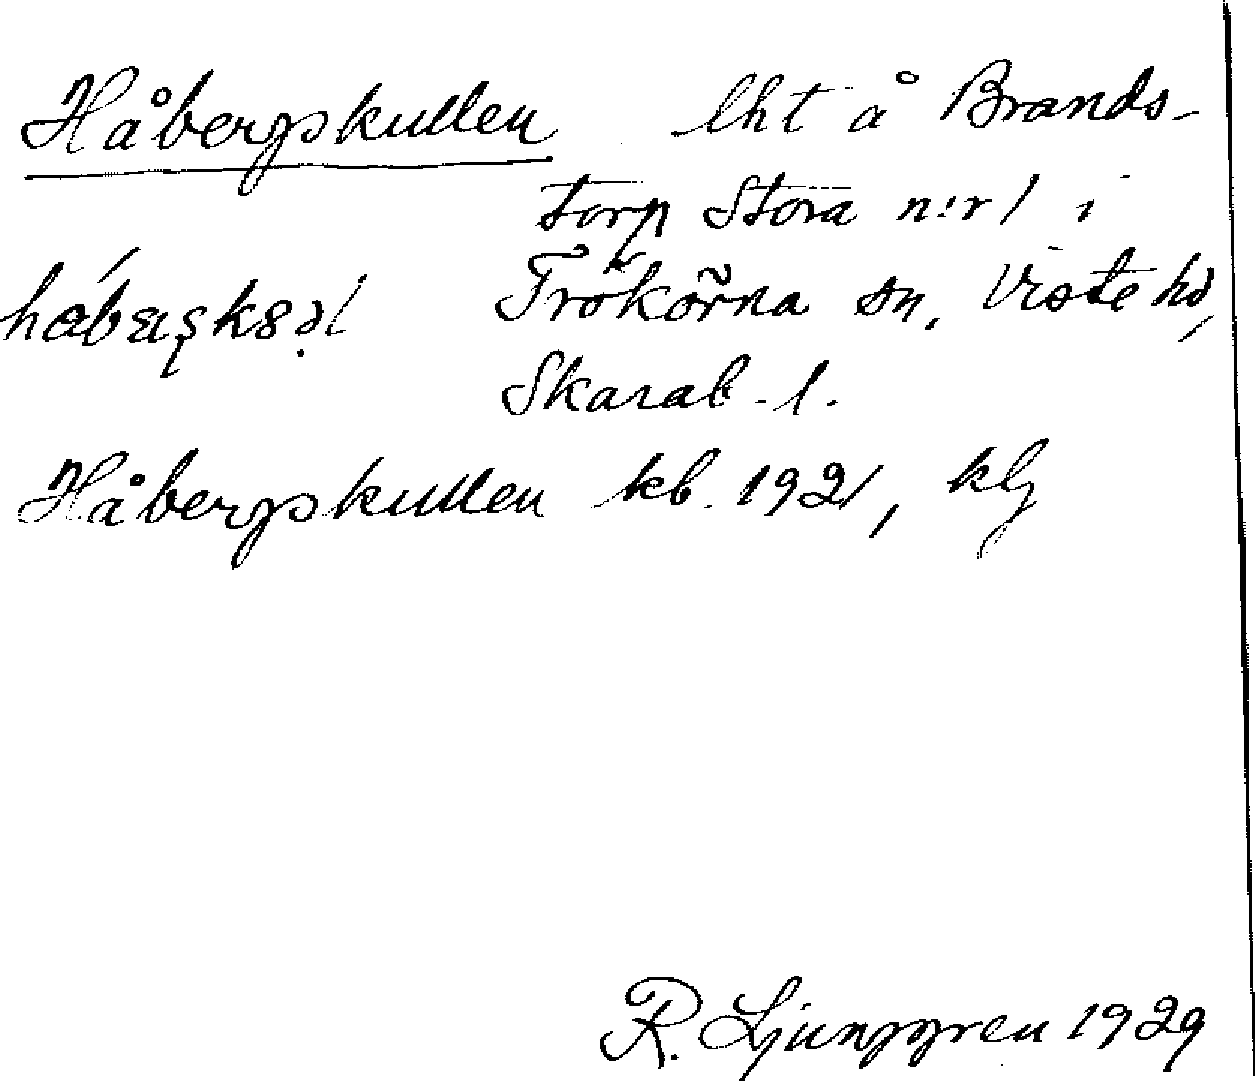 Håbergskullen lht å Brands-
torp Stora n:r 1 i
Trökörna sn, Viste hd,
Skarab. l.
Håbergskullen kb. 1921, klj
R. Ljunggren 1929